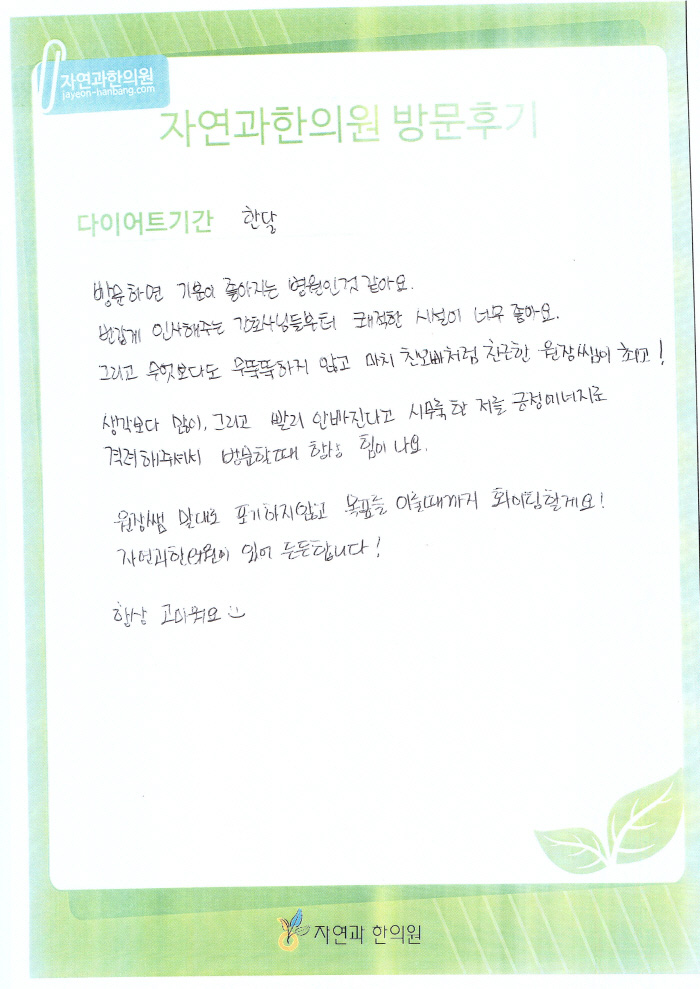 자연과한의원
jayeon-hanbang.com
자연과한의원 방문후기
다이어트기간 한달
방문하면 기분이 좋아지는 병원인것 같아요.
반갑게 인사해주는 간호사님들부터 쾌적한 시설이 너무 좋아요.
그리고 무엇보다도 무뚝뚝하지 않고 마치 친오빠처럼 친근한 원장쌤이 최고!
생각보다 많이, 그리고 빨리 안빠진다고 시무룩한 저를 긍정에너지로
격려해주셔서 방문할때 항상 힘이 나요.
원장쌤 말대로 포기하지않고 목표를 이룰때까지 화이팅할게요!
자연과한의원이 있어 든든합니다!
항상 고마워요
자연과 한의원